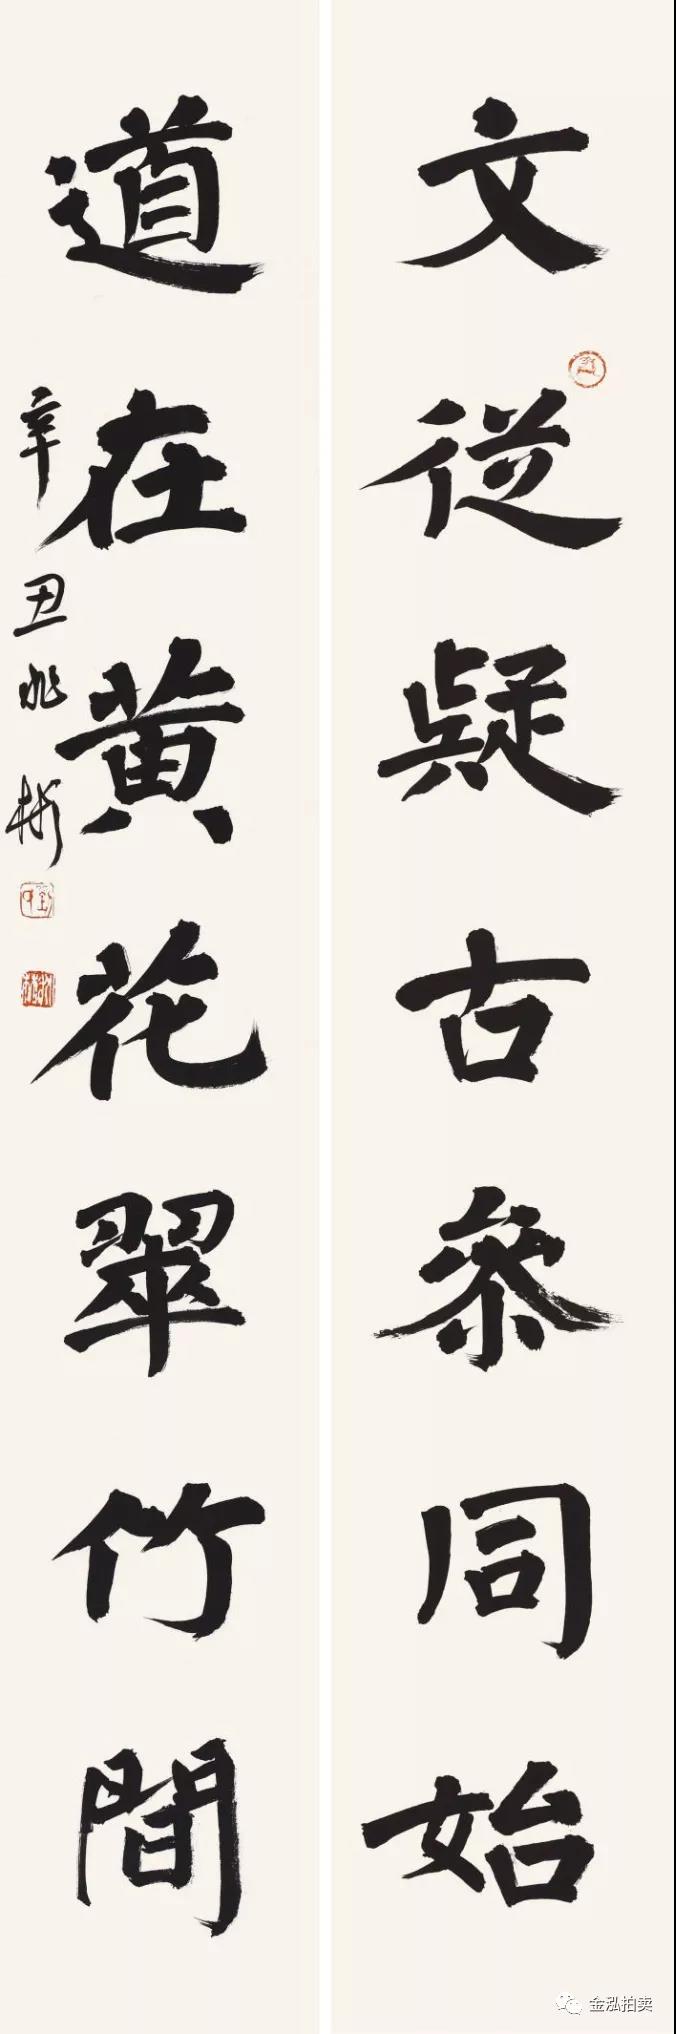 文從疑古參同始
道在黄花翠竹間
辛丑兆彬
金泓拍卖